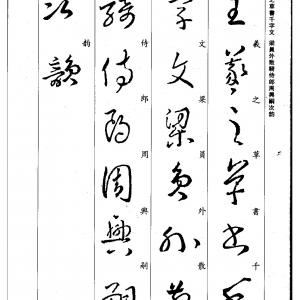 草書千字文 梁員外散騎侍郎周興嗣次韵
王羲之草書千
羲之草書千
字文梁員外散
文梁員外散
騎侍郎周興嗣
侍郎周興嗣
次韻
韵